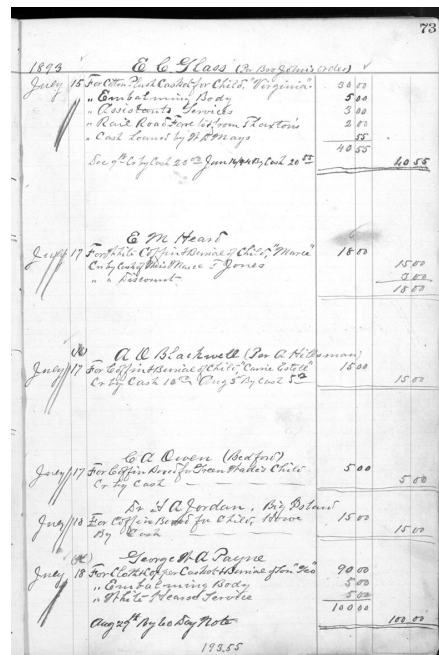 73
1893 E. C. Glass (Per Bro John's order)
July 15 For Cotton Plush Casket for Child, "Virginia" 30 00
" Embalming Body 5 00
" Assistants Services 3 00
" Rail Road Fare to & from Thaxtons 2 00
" Cash Loaned by W D Mays 55
40 55
Dec 9th Cr by Cash 20 00 Jan 14/94 By Cash 20 55 40 55
E M Heard
July 17 For White Coffin & Burial of Child, "Marie" 18 00
Cr by Cash of Miss Marie T Jones 15 00
" " Discount 3 00
18 00
A D Blackwell (Per A Hillsman)
July 17 For Coffin & Burial of Child, "Carie Estell" 15 00
Cr by Cash 10 00 Aug 5 By Cash 5 00 15 00
C A Owen (Bedford)
July 17 For Coffin Boxed for Green Wade's Child 5 00
Cr by Cash 5 00
Dr A Jordan, Big Island
July 18 For Coffin Boxed for Child, 15 00
By Cash 15 00
George W A Payne
July 18 For Cloth Copper Casket & Burial of Son "Geo" 90 00
" Embalming Body 5 00
" White Hearse Service 5 00
100 00
Aug 29th By 60 Day Note 100 00
193.55